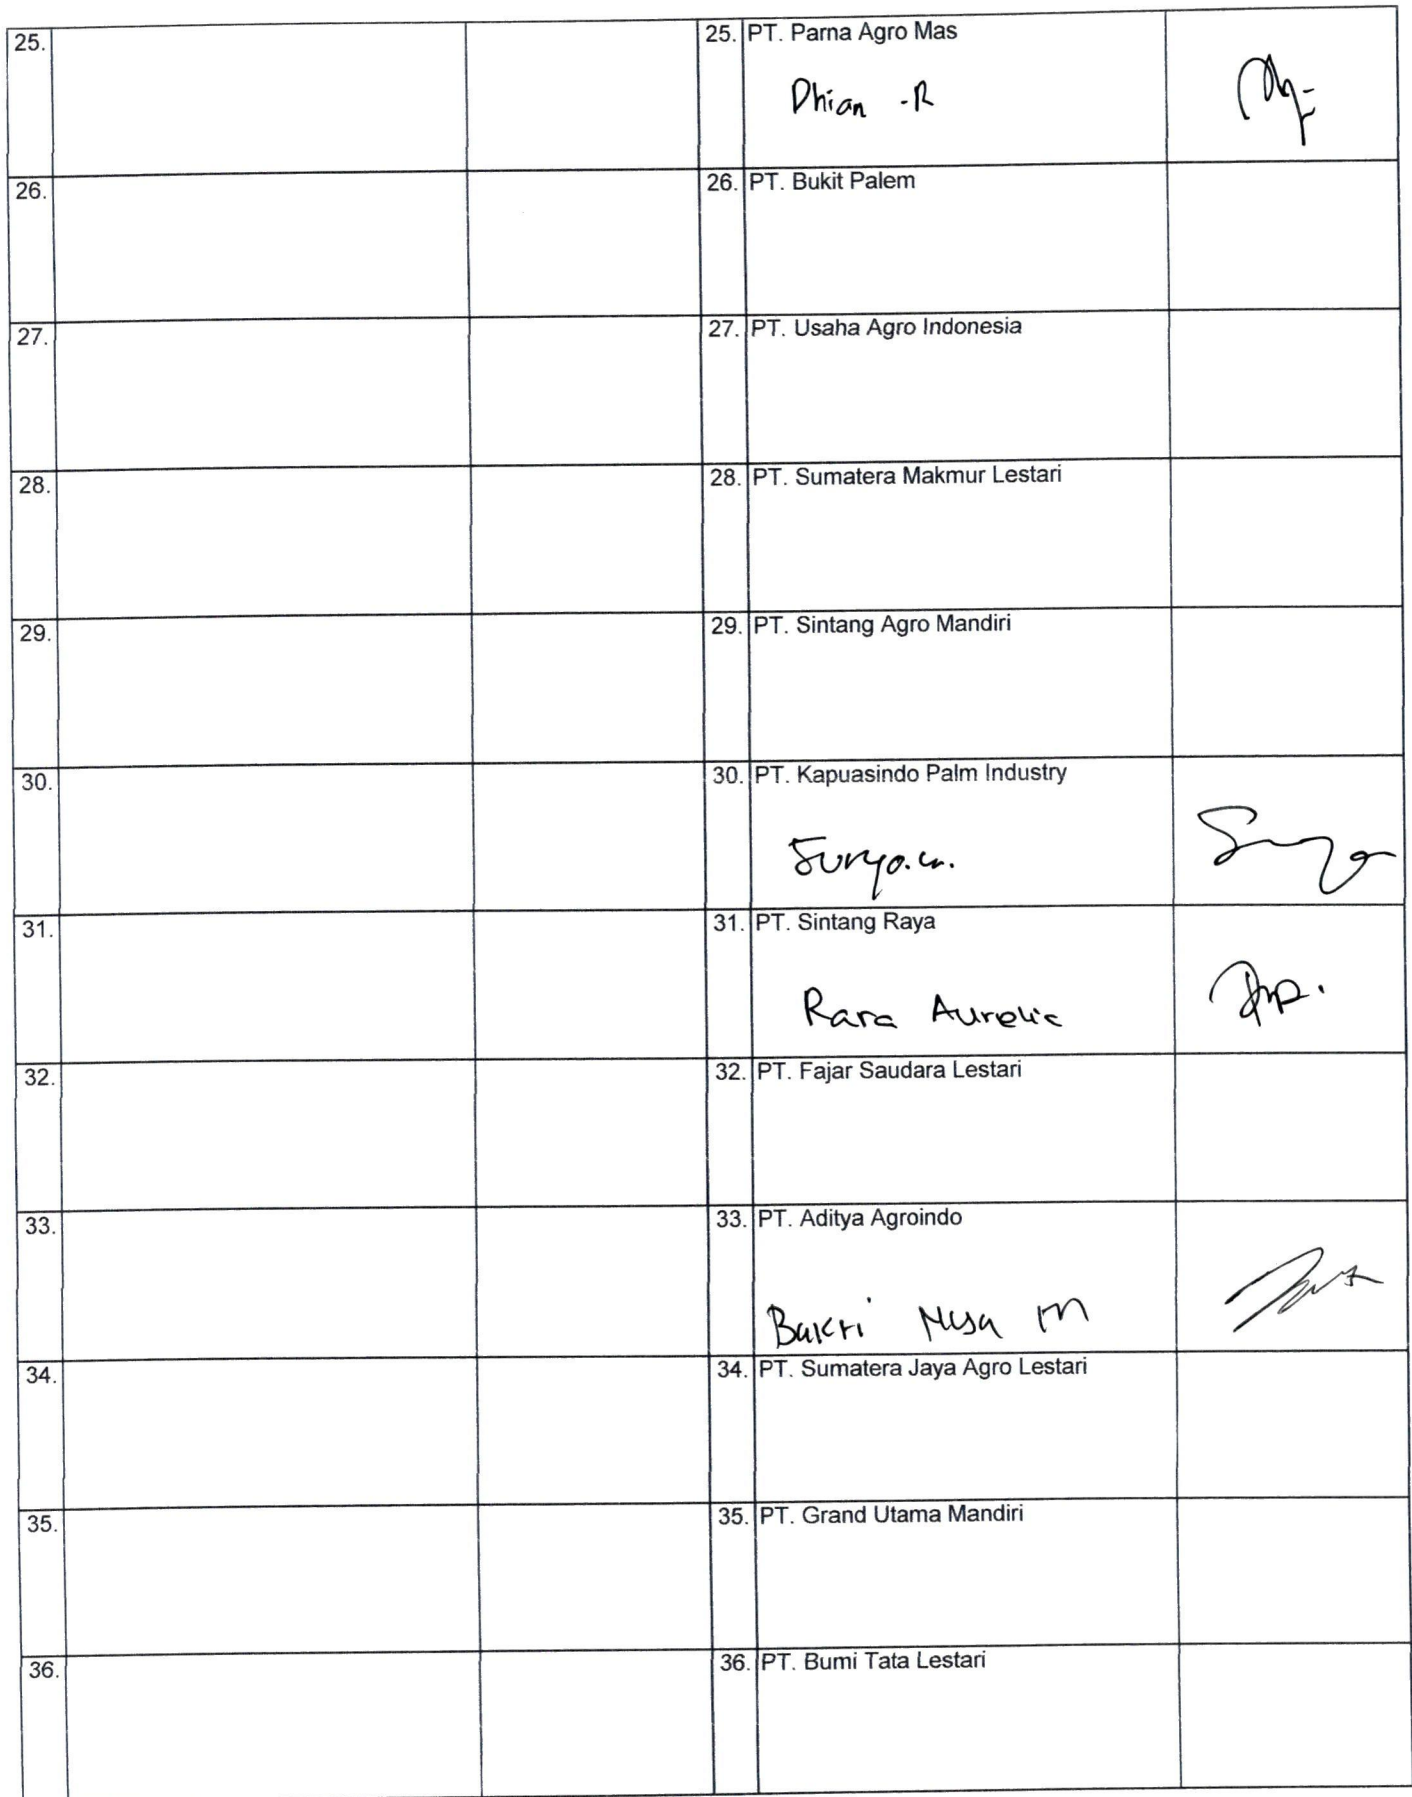 25. 25. PT. Parna Agro Mas
Dhian -R
26. 26. PT. Bukit Palem
27. 27. PT. Usaha Agro Indonesia
28. 28. PT. Sumatera Makmur Lestari
29. 29. PT. Sintang Agro Mandiri
30. 30. PT. Kapuasindo Palm Industry
31. 31. PT. Sintang Raya
Rara Aurelia
32. 32. PT. Fajar Saudara Lestari
33. 33. PT. Aditya Agroindo
Bakri Musa M
34. 34. PT. Sumatera Jaya Agro Lestari
35. 35. PT. Grand Utama Mandiri
36. 36. PT. Bumi Tata Lestari